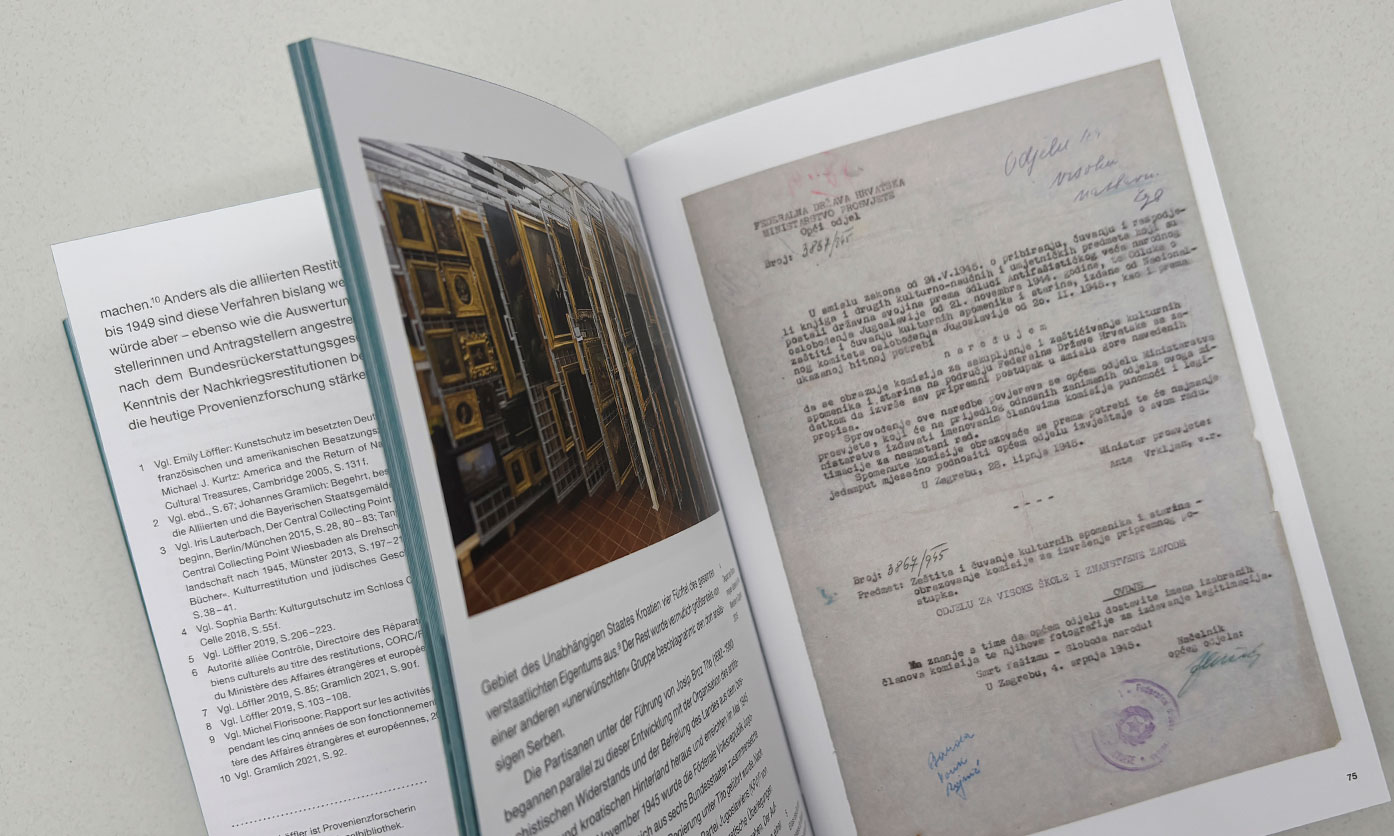 machen.10 Anders als die alliierten Restitu
bis 1949 sind diese Verfahren bislang we
würde aber – ebenso wie die Auswertun
stellerinnen und Antragstellern angestre
nach dem Bundesrückerstattungsges
Kenntnis der Nachkriegsrestitutionen be
die heutige Provenienzforschung stärke
1 Vgl. Emily Löffler: Kunstschutz im besetzten Deut
französischen und amerikanischen Besatzungs
Michael J. Kurtz: America and the Return of Na
Cultural Treasures, Cambridge 2005, S. 131f.
2 Vgl. ebd., S. 67; Johannes Gramlich: Begehrt, bes
die Alliierten und die Bayerischen Staatsgemälde
3 Vgl. Iris Lauterbach, Der Central Collecting Point
beginn, Berlin/München 2015, S. 28, 80–83; Tan
Central Collecting Point Wiesbaden als Drehsch
landschaft nach 1945, Münster 2013, S. 197–21
Bücher«. Kulturrestitution und jüdisches Gesc
S. 38–41.
4 Vgl. Sophia Barth: Kulturgutschutz im Schloss C
Celle 2018, S. 55f.
5 Vgl. Löffler 2019, S. 206–223.
6 Autorité alliée Contrôle, Directoire des Réparat
biens culturels au titre des restitutions, CORC/P
du Ministère des Affaires étrangères et europée
7 Vgl. Löffler 2019, S. 85; Gramlich 2021, S. 90f.
8 Vgl. Löffler 2019, S. 103–108.
9 Vgl. Michel Florisoone: Rapport sur les activités
pendant les cinq années de son fonctionnement
tère des Affaires étrangères et européennes, 20
10 Vgl. Gramlich 2021, S. 92.
Löffler ist Provenienzforscherin
elbibliothek.
Gebiet des Unabhängigen Staates Kroatien vier Fünftel des gesamten
verstaatlichten Eigentums aus.9 Der Rest wurde vermutlich größtenteils von
einer anderen »unerwünschten« Gruppe beschlagnahmt: den dort ansäs-
sigen Serben.
Die Partisanen unter der Führung von Josip Broz Tito (1892–1980)
begannen parallel zu dieser Entwicklung mit der Organisation des antifa-
schistischen Widerstands und der Befreiung des Landes aus dem bos-
und kroatischen Hinterland heraus und erreichten im Mai 1945
November 1945 wurde die Föderale Volksrepublik Jugo-
ich aus sechs Bundesstaaten zusammensetzte
Regierung unter Tito geführt wurde, nach
Partei Jugoslawiens (KPJ)
FEDERALNA DRŽAVA HRVATSKA
MINISTARSTVO PROSVJETE
Opći odjel
Broj: 3867/945
Odjelu
visoku
U smislu zakona od 24.V.1945. o pribiranju, čuvanju i raspodje-
li knjiga i drugih kulturno-naučnih i umjetničkih predmeta koji su
postali državna svojina prema odluci Antifašističkog veća narodnog
oslobođenja Jugoslavije od 21. novembra 1944. godine, te Odluke o
zaštiti i čuvanju kulturnih spomenika i starina, izdane od Nacional-
nog komiteta oslobođenja Jugoslavije od 20. II. 1945., kao i prema
ukazanoj hitnoj potrebi
n a r e đ u j e m
da se obrazuje komisija za sakupljanje i zaštićivanje kulturnih
spomenika i starina na području Federalne Države Hrvatske sa za-
datkom da izvrše sav pripremni postupak u smislu gore navedenih
propisa.
Sprovođenje ove naredbe povjerava se općem odjelu Ministarstva
prosvjete, koji će na prijedlog odnosnih zanimanih odjela ovoga mi-
nistarstva izdavati imenovanim članovima komisija punomoći i legi-
timacije za nesmetani rad.
Spomenute komisije obrazovaće se prema potrebi te će najmanje
jedamput mjesečno podnositi općem odjelu izvještaje o svom radu.
U Zagrebu, 28. lipnja 1945.
Ministar prosvjete:
Ante Vrkljan, v.r.
Broj: 3867/945
Predmet: Zaštita i čuvanje kulturnih spomenika i starina -
obrazovanje komisije za izvršenje pripremnog po-
stupka.
ODJELU ZA VISOKE ŠKOLE I ZNANSTVENE ZAVODE
OVDJE
Na znanje s time da općem odjelu dostavite imena izabranih
članova komisija te njihove fotografije za izdavanje legitimacija.
Smrt fašizmu - Sloboda narodu!
U Zagrebu, 4. srpnja 1945.
Načelnik
općeg odjela:
75